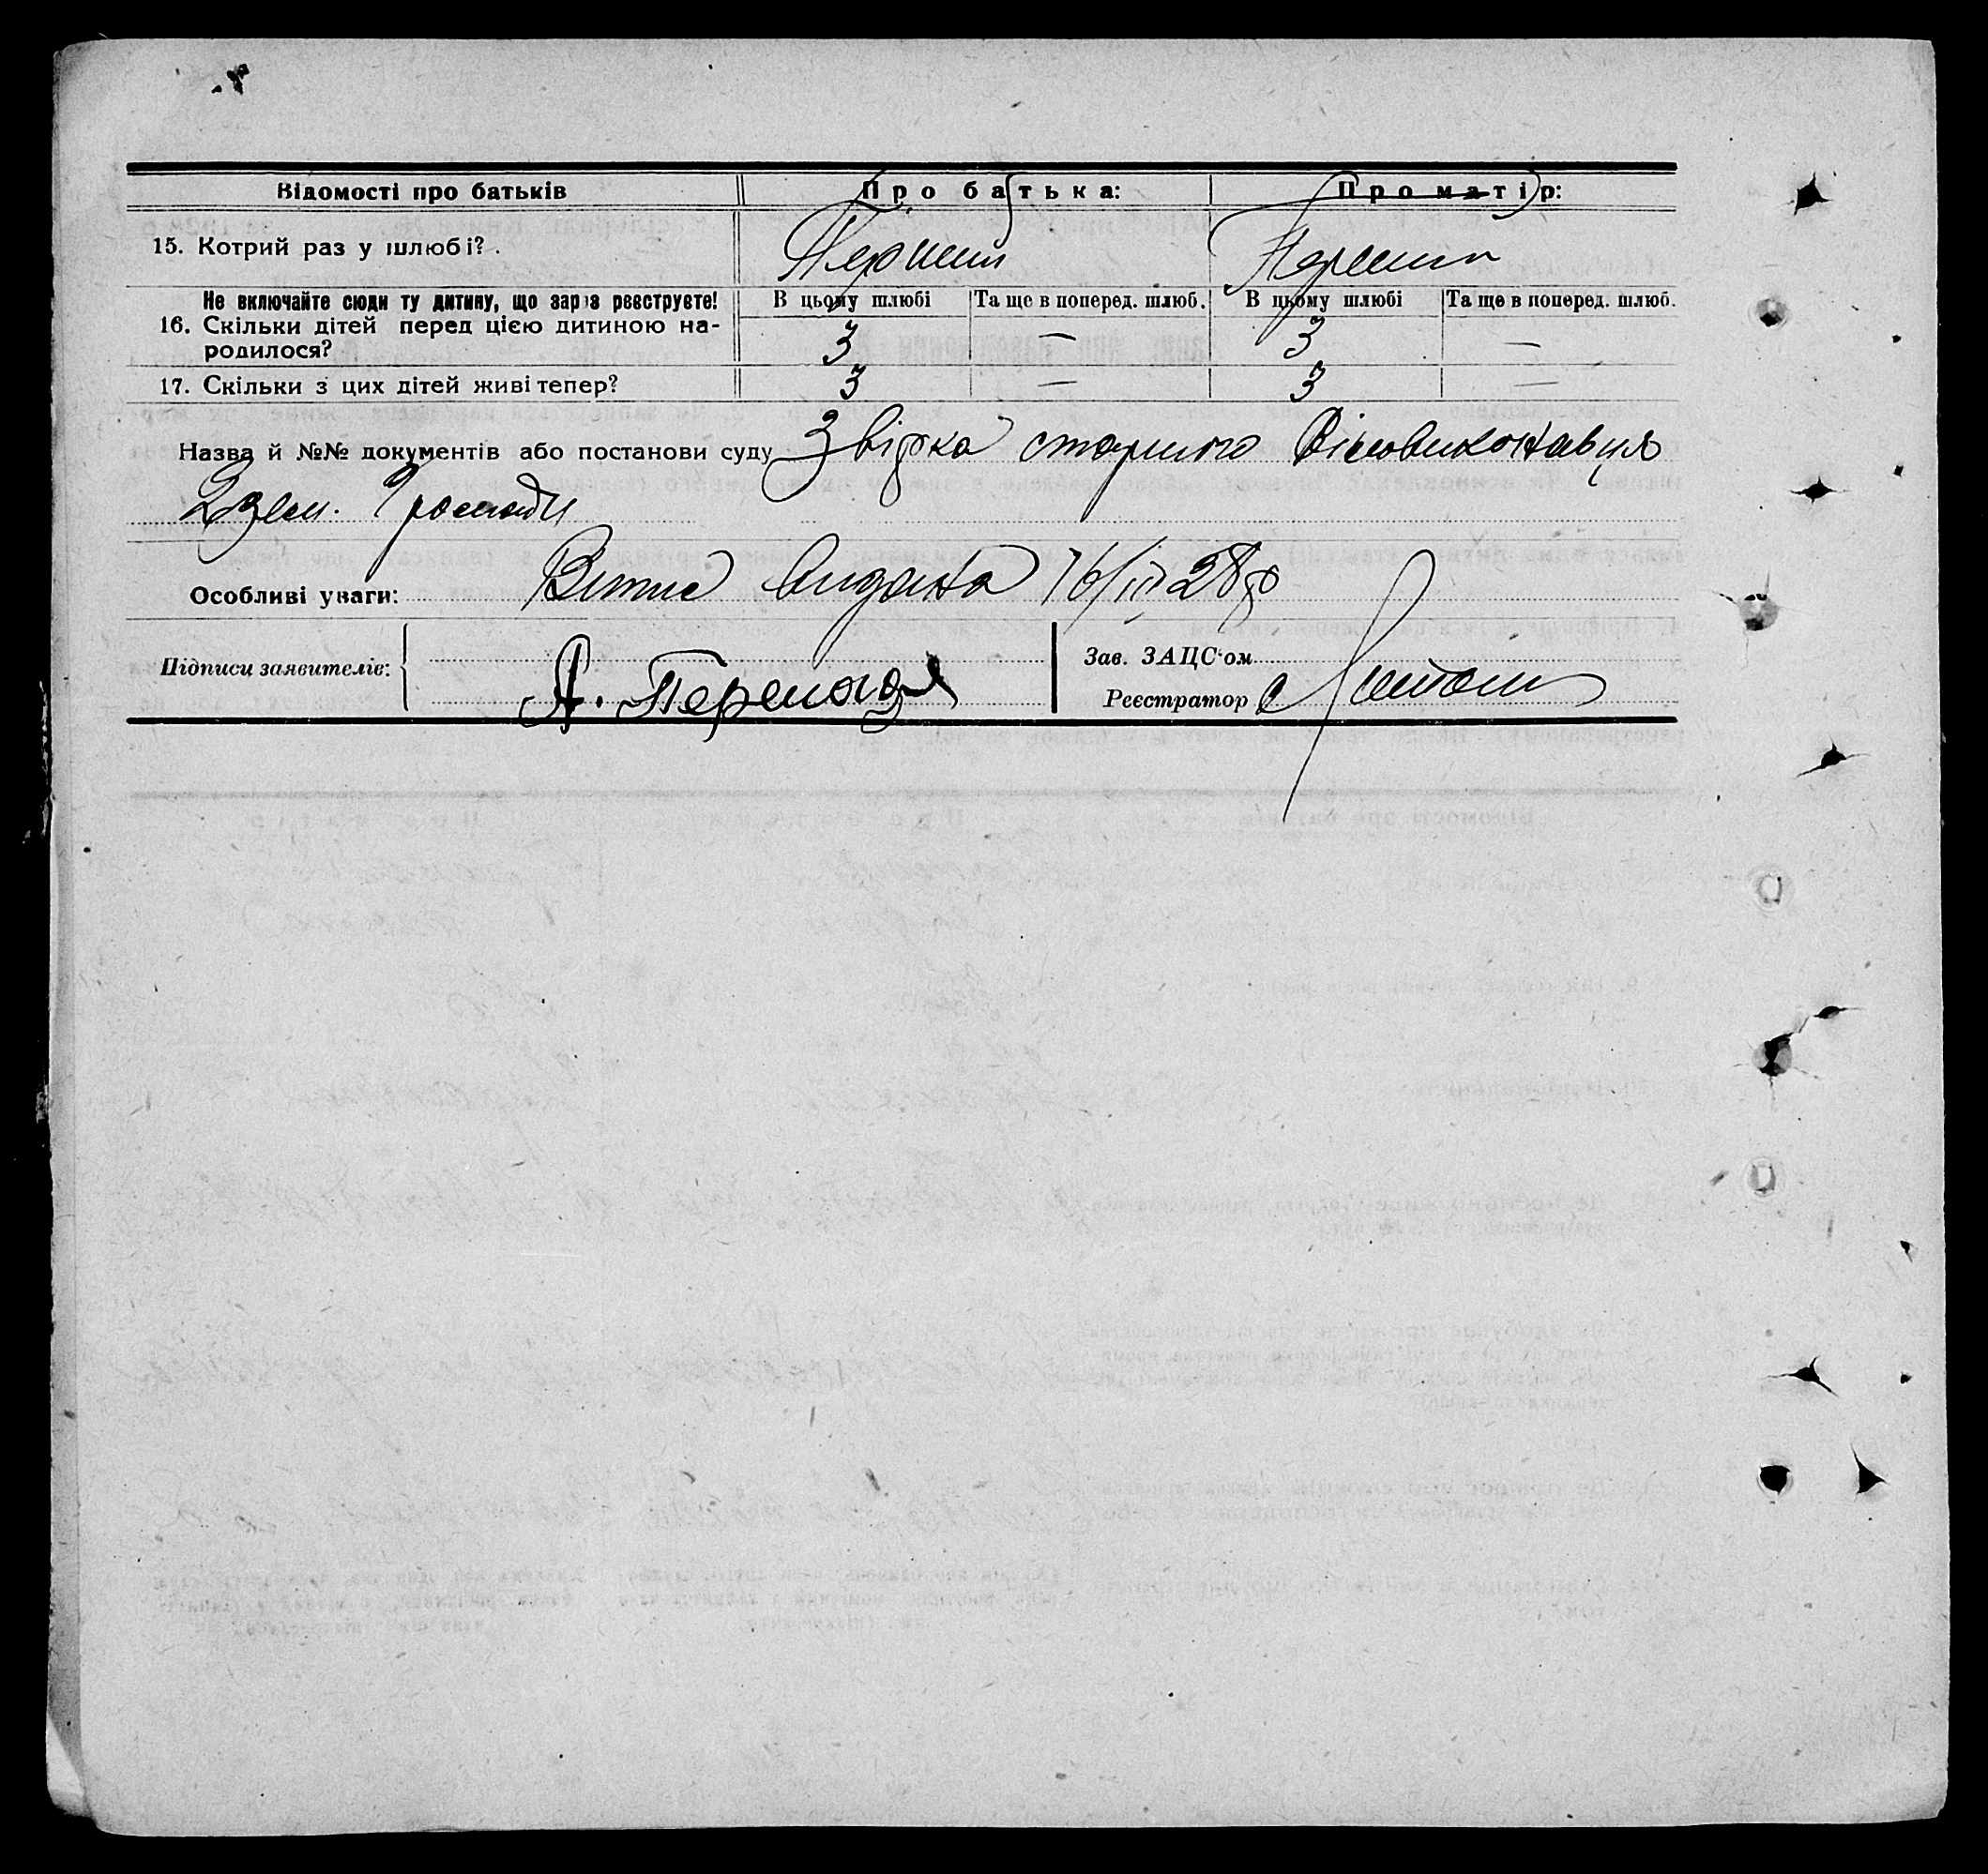 Відомості про батьків Про батька: Про матір:
15. Котрий раз у шлюбі? Перший Перший
Не включайте сюди ту дитину, що зараз реєструєте! В цьому шлюбі Та ще в поперед. шлюб. В цьому шлюбі Та ще в поперед. шлюб.
16. Скільки дітей перед цією дитиною на-
родилося? 3 — 3 —
17. Скільки з цих дітей живі тепер? 3 — 3 —
Назва й №№ документів або постанови суду Звірка старшого Вісповиконавця
2 зем. Громади
Особливі уваги: Витяг видана 16/III 28 р
Підписи заявителів: Зав. ЗАЦС'ом
А. Реєстратор